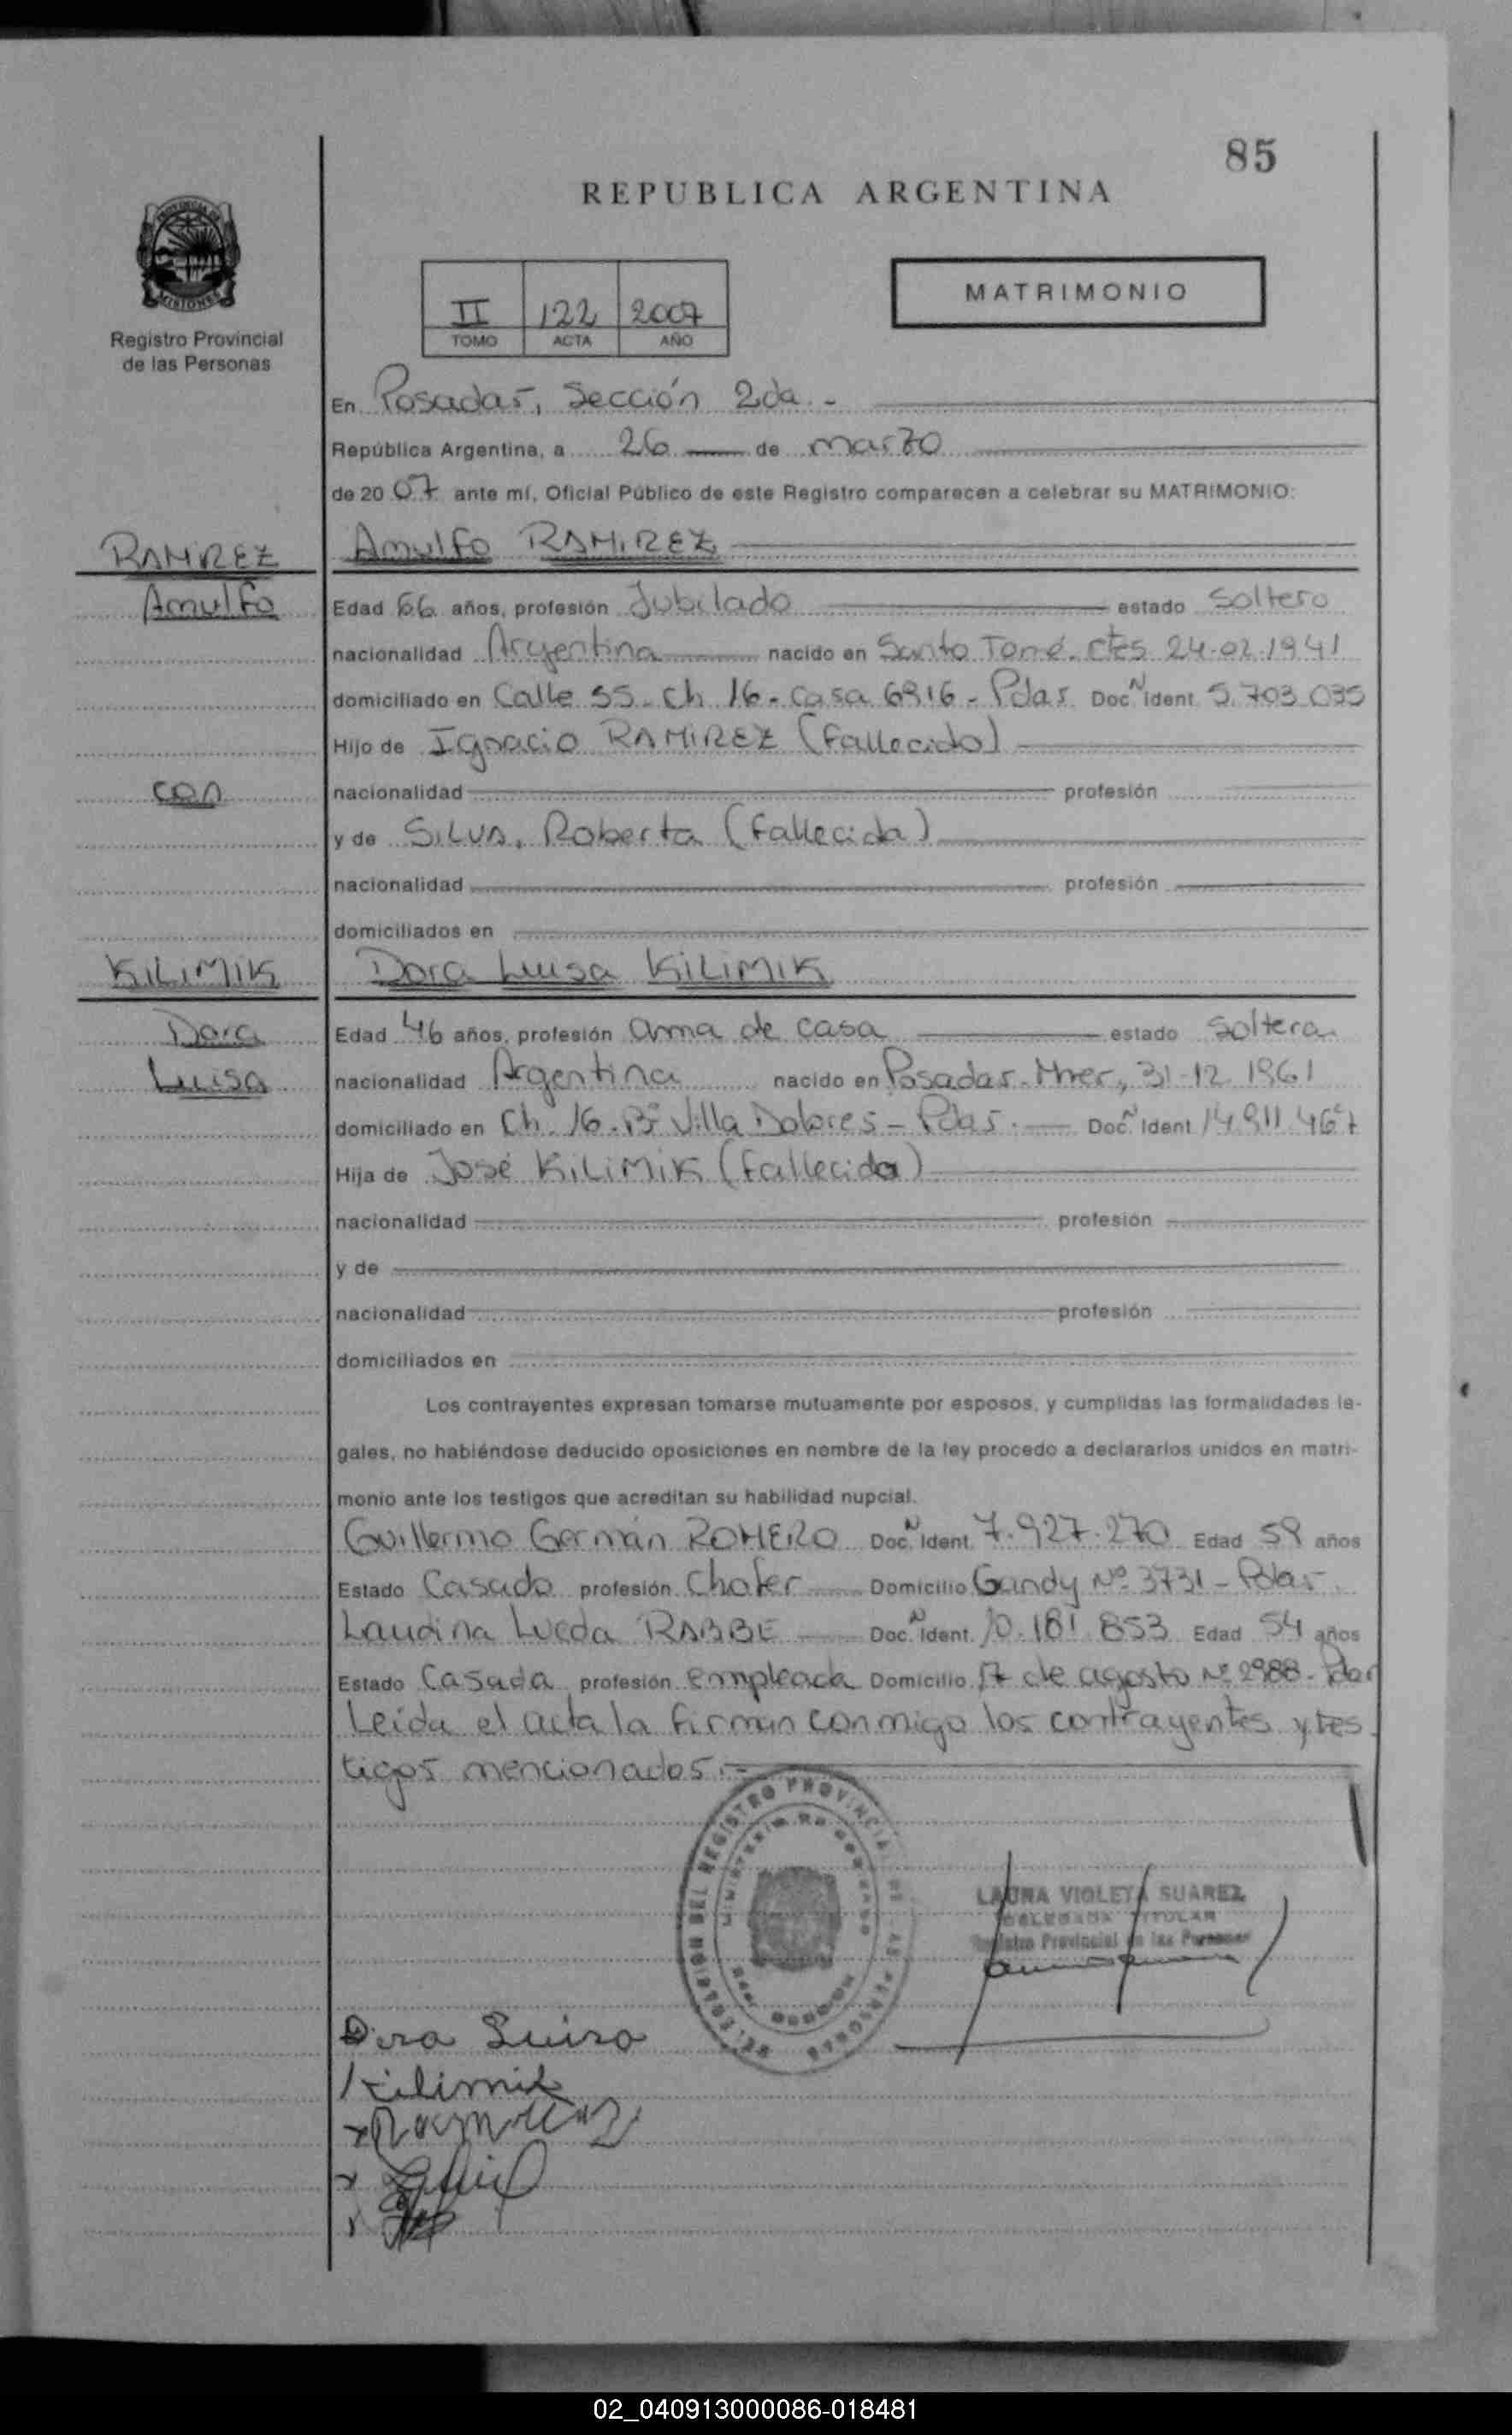 85
REPUBLICA ARGENTINA
PROVINCIA DE
MISIONES
Registro Provincial
de las Personas
II 122 2007
TOMO ACTA AÑO
MATRIMONIO
En Posadas, Sección 2da.-
República Argentina, a 26 de marzo
de 2007 ante mí, Oficial Público de este Registro comparecen a celebrar su MATRIMONIO:
RAMIREZ
Arnulfo RAMIREZ
Arnulfo
Edad 66 años, profesión Jubilado estado Soltero
nacionalidad Argentina nacido en Santo Tomé. Ctes 24-02-1941
domiciliado en Calle 55- Ch 16- Casa 6916- Pdas Doc.N Ident. 5.703.035
Hijo de Ignacio RAMIREZ (Fallecido)
con
nacionalidad profesión
y de SILVA, Roberta (Fallecida)
nacionalidad profesión
domiciliados en
KILIMIK
Dora Luisa KILIMIK
Dora
Edad 46 años, profesión ama de casa estado Soltera
Luisa
nacionalidad Argentina nacido en Posadas- Mnes, 31-12-1961
domiciliado en Ch. 16- Bº Villa Dolores- Pdas.- Doc.N Ident. 14.911.467
Hija de José KILIMIK (Fallecido)
nacionalidad profesión
y de
nacionalidad profesión
domiciliados en
Los contrayentes expresan tomarse mutuamente por esposos, y cumplidas las formalidades le-
gales, no habiéndose deducido oposiciones en nombre de la ley procedo a declararlos unidos en matri-
monio ante los testigos que acreditan su habilidad nupcial.
Guillermo Germán ROMERO Doc.N Ident. 7.927.270 Edad 59 años
Estado Casado profesión Chofer Domicilio Gandy Nº 3731- Pdas
Laudina Lucda RABBE Doc.N Ident. 10.181.853 Edad 54 años
Estado Casada profesión empleada Domicilio 17 de agosto Nº 2988- Pdas
Leída el acta la firman conmigo los contrayentes y tes
tigos mencionados.-
LAURA VIOLETA SUAREZ
DELEGADA TITULAR
Registro Provincial de las Personas
Dora Luisa
Kilimik
x Ramirez
x
x
02_040913000086-018481